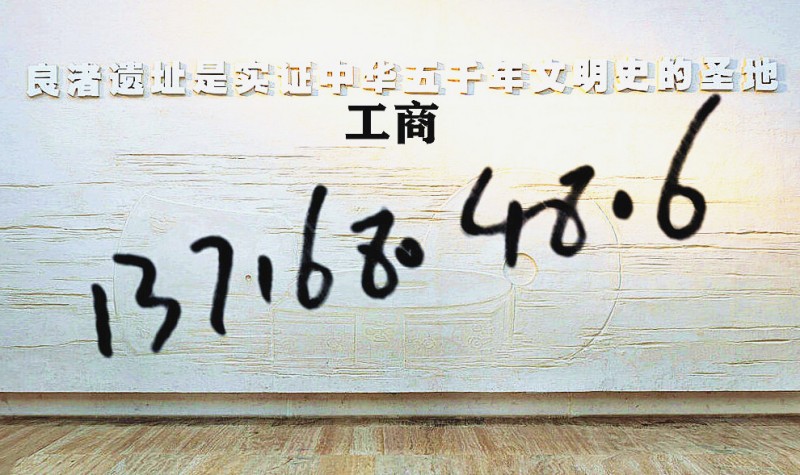 良渚遗址是实证中华五千年文明史的圣地
工商
137.68.48.6